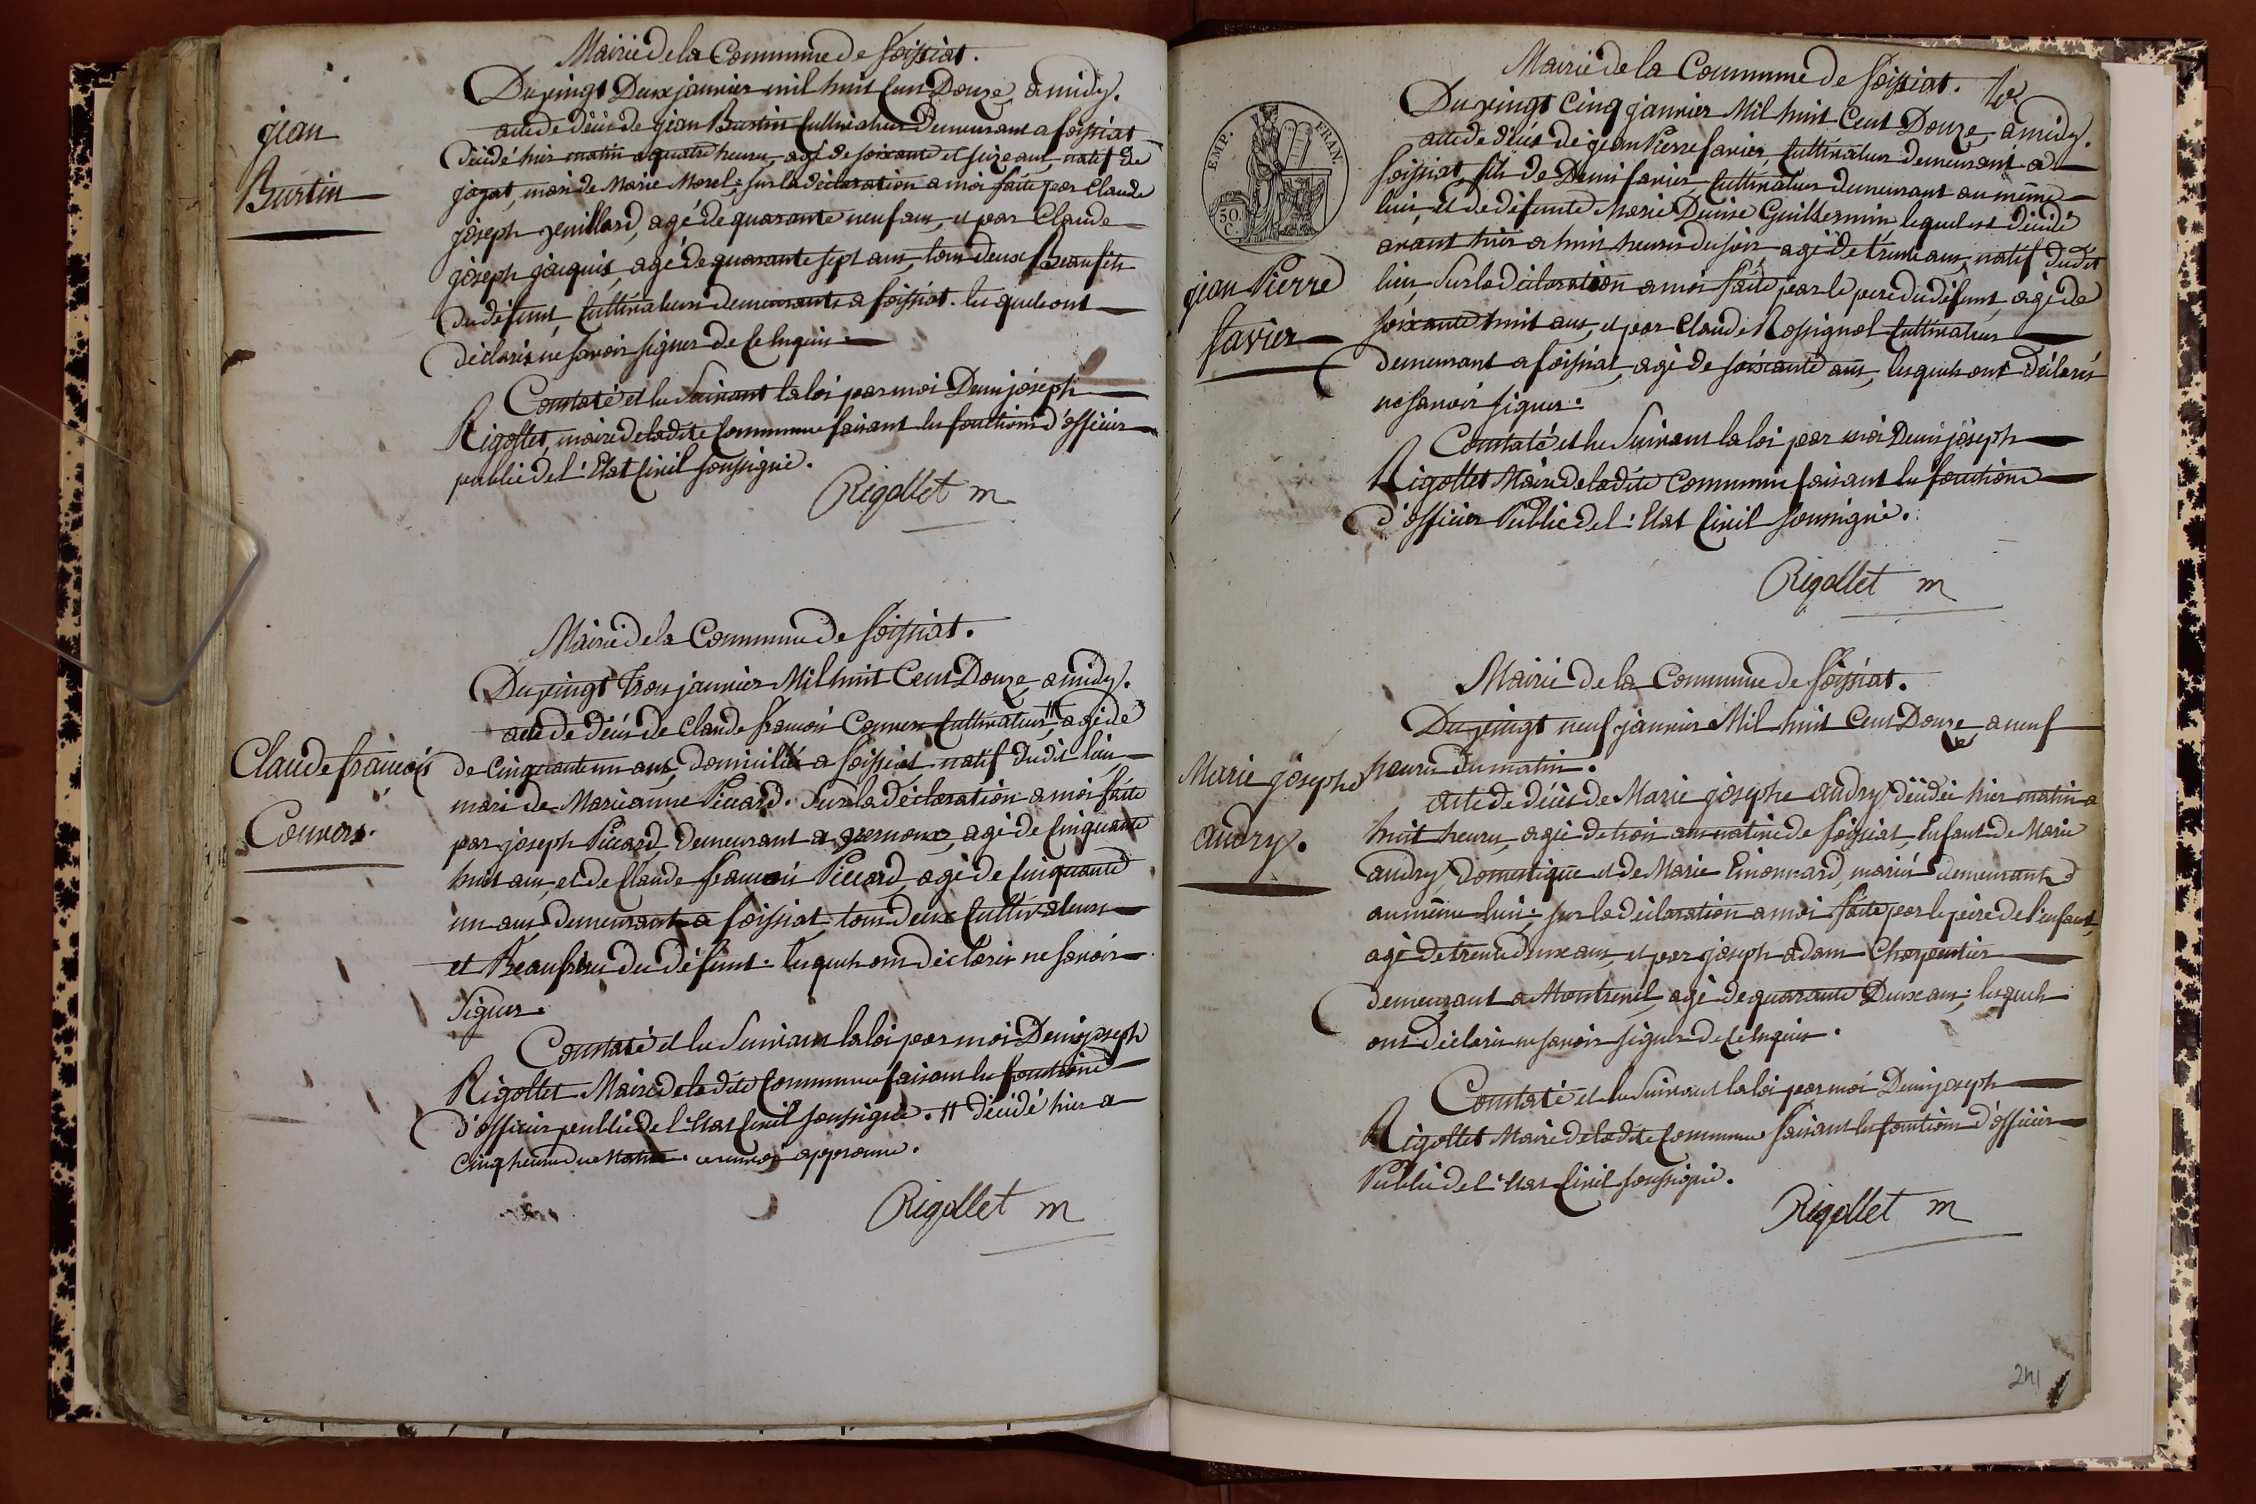 Mairie de la Commune de foissiat.
Du vingt Deux janvier mil huit Cent Douze, a midy.
jean
Burtin
acte de décés de jean Burtin Cultivateur Demeurant a foissiat
décédé hier matin a quatre heures, agé de soixante et seize ans, natif de
jayat, mari de Marie Morel; sur la déclaration a moi faite par Claude
joseph Jeuillard, agé de quarante neuf ans, et par Claude
joseph jacquis, agé de quarante sept ans, tous deux Beaufils
du défunt, Cultivateurs demeurants a foissiat. les quels ont
déclarés ne savoir signer de Ce Enquis.
Constaté et lu Suivant la loi par moi Denis joseph
Rigollet, maire de ladite Commune faisant les fonctions d'officier
public de l'Etat Civil soussigné.
Rigollet m
Mairie de la Commune de foissiat.
Du vingt trois janvier Mil huit Cent Douze, a midy.
Claude françois
Convers.
acte de décés de Claude françois Convers Cultivateur, # agé de
de Cinquante un ans, domicilié a foissiat natif dudit lieu
mari de Marieanne Piccard. Sur la déclaration a moi faite
par joseph Piccard Demeurant a, agé de Cinquante
huit ans, et de Claude françois Piccard, agé de Cinquante
un ans demeurant a foissiat, tous deux Cultivateurs
et Beaufrères du défunt. les quels ont déclarés ne savoir
Signer.
Constaté et lu Suivant la loi par moi Denis joseph
Rigollet Maire de ladite Commune faisant les fonctions
d'officier public de l'Etat Civil soussigné. # décédé hier a
Cinq heures du Matin. ce renvoy approuvé.
Rigollet m
Mairie de la Commune de foissiat.
Du vingt Cinq janvier Mil huit Cent Douze, a midy.
EMP. FRAN.
50
C.
jean Pierre
favier
acte de décés de jean Pierre favier, Cultivateur demeurant a
foissiat, fils de Denis favier, Cultivateur demeurant au même
lieu, et de défunte Marie Denise Guillermin, lequel est décédé
avant hier a huit heures du soir agé de trente ans, natif dudit
lieu, Sur la déclaration a moi faite par le pere du défunt agé de
soixante huit ans, et par Claude Rossignol Cultivateur
demeurant a foissiat, agé de soixante ans, lesquels ont déclarés
ne savoir signer.
Constaté et lu Suivant la loi par moi Denis joseph
Rigollet Maire de ladite Commune faisant les fonctions
d'officier Public de l'Etat Civil soussigné.
Rigollet m
Mairie de la Commune de foissiat.
Du vingt neuf janvier Mil huit Cent Douze a neuf
heures du matin.
Marie josephe
audry.
acte de décès de Marie josephe audry, décédée hier matin a
huit heures, agée de trois ans native de foissiat, Enfant de Marie
audry, Domestique et de Marie, mariés demeurants
au même lieu; sur la déclaration a moi faite par le pére de l'enfant,
agé de trente deux ans, et par joseph adam Charpentier
demeurant a Montrevel, agé de quarante Deux ans; lesquels
ont déclarés ne savoir signer de Ce Enquis.
Constaté et lu Suivant la loi par moi Denis joseph
Rigollet Maire de ladite Commune faisant les fonctions d'officier
Public de l'Etat Civil soussigné.
Rigollet m
241